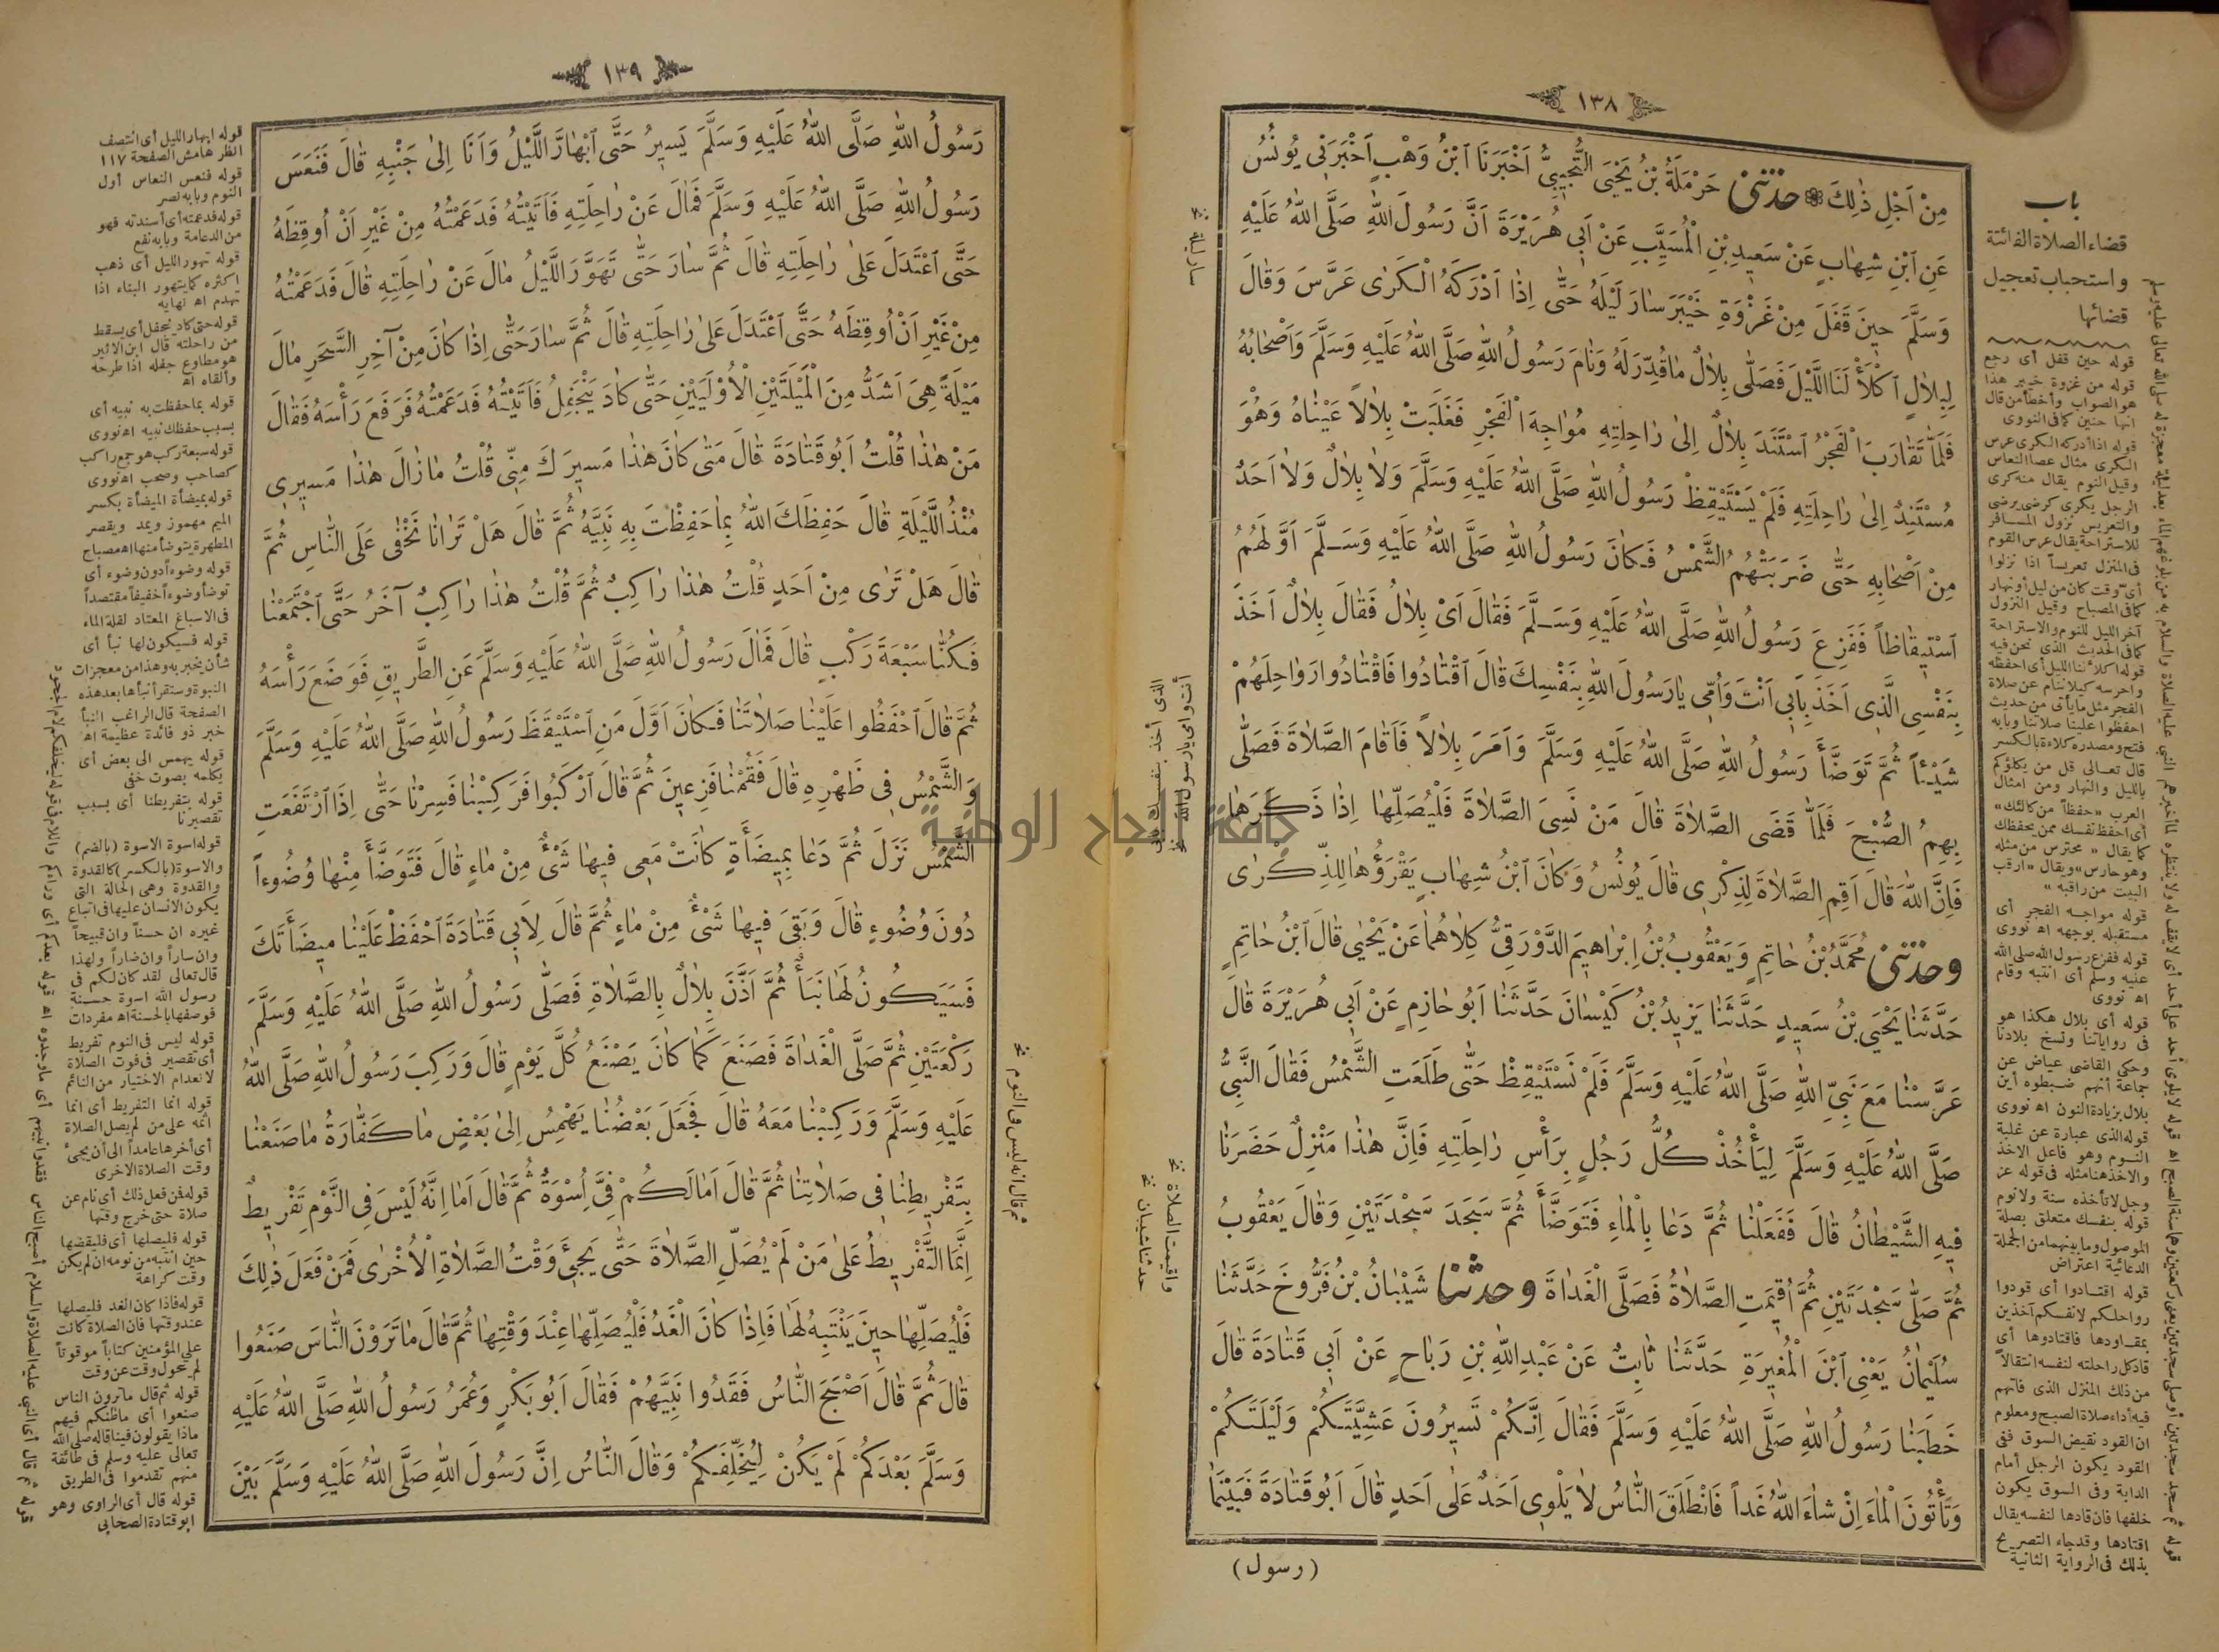 ١٣٨
مِنْ اَجْلِ ذٰلِكَ ❁ حدثنى حَرْمَلَةُ بْنُ يَحْيَى التُّجِيبِىُّ اَخْبَرَنَا ابْنُ وَهْبٍ اَخْبَرَنِى يُونُسُ
عَنِ ابْنِ شِهَابٍ عَنْ سَعِيدِ بْنِ الْمُسَيَّبِ عَنْ اَبِى هُرَيْرَةَ اَنَّ رَسُولَ اللهِ صَلَّى اللهُ عَلَيْهِ
وَسَلَّمَ حِينَ قَفَلَ مِنْ غَزْوَةِ خَيْبَرَ سَارَ لَيْلَهُ حَتّٰى اِذَا اَدْرَكَهُ الْكَرٰى عَرَّسَ وَقَالَ
لِبِلَالٍ اكْلَأْ لَنَا اللَّيْلَ فَصَلّٰى بِلَالٌ مَا قُدِّرَ لَهُ وَنَامَ رَسُولُ اللهِ صَلَّى اللهُ عَلَيْهِ وَسَلَّمَ وَاَصْحَابُهُ
فَلَمَّا تَقَارَبَ الْفَجْرُ اسْتَنَدَ بِلَالٌ اِلٰى رَاحِلَتِهِ مُوَاجِهَ الْفَجْرِ فَغَلَبَتْ بِلَالاً عَيْنَاهُ وَهُوَ
مُسْتَنِدٌ اِلٰى رَاحِلَتِهِ فَلَمْ يَسْتَيْقِظْ رَسُولُ اللهِ صَلَّى اللهُ عَلَيْهِ وَسَلَّمَ وَلَا بِلَالٌ وَلَا اَحَدٌ
مِنْ اَصْحَابِهِ حَتّٰى ضَرَبَتْهُمُ الشَّمْسُ فَكَانَ رَسُولُ اللهِ صَلَّى اللهُ عَلَيْهِ وَسَلَّمَ اَوَّلَهُمُ
اسْتِيقَاظاً فَفَزِعَ رَسُولُ اللهِ صَلَّى اللهُ عَلَيْهِ وَسَلَّمَ فَقَالَ اَىْ بِلَالُ فَقَالَ بِلَالٌ اَخَذَ
بِنَفْسِى الَّذِى اَخَذَ بِاَبِى اَنْتَ وَاُمِّى يَا رَسُولَ اللهِ بِنَفْسِكَ قَالَ اقْتَادُوا فَاقْتَادُوا رَوَاحِلَهُمْ
شَيْئاً ثُمَّ تَوَضَّأَ رَسُولُ اللهِ صَلَّى اللهُ عَلَيْهِ وَسَلَّمَ وَاَمَرَ بِلَالاً فَاَقَامَ الصَّلَاةَ فَصَلّٰى
بِهِمُ الصُّبْحَ فَلَمَّا قَضَى الصَّلَاةَ قَالَ مَنْ نَسِىَ الصَّلَاةَ فَلْيُصَلِّهَا اِذَا ذَكَرَهَا
فَاِنَّ اللهَ قَالَ اَقِمِ الصَّلَاةَ لِذِكْرِى قَالَ يُونُسُ وَكَانَ ابْنُ شِهَابٍ يَقْرَؤُهَا لِلذِّكْرٰى
وحدثنى مُحَمَّدُ بْنُ حَاتِمٍ وَيَعْقُوبُ بْنُ اِبْرَاهِيمَ الدَّوْرَقِىُّ كِلَاهُمَا عَنْ يَحْيٰى قَالَ ابْنُ حَاتِمٍ
حَدَّثَنَا يَحْيَى بْنُ سَعِيدٍ حَدَّثَنَا يَزِيدُ بْنُ كَيْسَانَ حَدَّثَنَا اَبُو حَازِمٍ عَنْ اَبِى هُرَيْرَةَ قَالَ
عَرَّسْنَا مَعَ نَبِىِّ اللهِ صَلَّى اللهُ عَلَيْهِ وَسَلَّمَ فَلَمْ نَسْتَيْقِظْ حَتّٰى طَلَعَتِ الشَّمْسُ فَقَالَ النَّبِىُّ
صَلَّى اللهُ عَلَيْهِ وَسَلَّمَ لِيَأْخُذْ كُلُّ رَجُلٍ بِرَأْسِ رَاحِلَتِهِ فَاِنَّ هٰذَا مَنْزِلٌ حَضَرَنَا
فِيهِ الشَّيْطَانُ قَالَ فَفَعَلْنَا ثُمَّ دَعَا بِالْمَاءِ فَتَوَضَّأَ ثُمَّ سَجَدَ سَجْدَتَيْنِ وَقَالَ يَعْقُوبُ
ثُمَّ صَلّٰى سَجْدَتَيْنِ ثُمَّ اُقِيمَتِ الصَّلَاةُ فَصَلَّى الْغَدَاةَ وحدثنا شَيْبَانُ بْنُ فَرُّوخَ حَدَّثَنَا
سُلَيْمَانُ يَعْنِى ابْنَ الْمُغِيرَةِ حَدَّثَنَا ثَابِتٌ عَنْ عَبْدِ اللهِ بْنِ رَبَاحٍ عَنْ اَبِى قَتَادَةَ قَالَ
خَطَبَنَا رَسُولُ اللهِ صَلَّى اللهُ عَلَيْهِ وَسَلَّمَ فَقَالَ اِنَّكُمْ تَسِيرُونَ عَشِيَّتَكُمْ وَلَيْلَتَكُمْ
وَتَأْتُونَ الْمَاءَ اِنْ شَاءَ اللهُ غَداً فَانْطَلَقَ النَّاسُ لَا يَلْوِى اَحَدٌ عَلٰى اَحَدٍ قَالَ اَبُو قَتَادَةَ فَبَيْنَمَا
(رسول)
باب
قضاء الصلاة الفائتة
واستحباب تعجيل
قضائها
قوله حين قفل أى رجع
قوله من غزوة خيبر هذا
هو الصواب وأخطأ من قال
انها حنين كما فى النووى
قوله اذا أدركه الكرى عرس
الكرى مثال عصا النعاس
وقيل النوم يقال منه كرى
الرجل يكرى كرضى يرضى
والتعريس نزول المسافر
للاستراحة يقال عرس القوم
فى المنزل تعريساً اذا نزلوا
أىّ وقت كان من ليل أو نهار
كما فى المصباح وقيل النزول
آخر الليل للنوم والاستراحة
كما فى الحديث الذى نحن فيه
قوله اكلأ لنا الليل أى احفظه
واحرسه كيلا ننام عن صلاة
الفجر مثل ما يأتى من حديث
احفظوا علينا صلاتنا وبابه
فتح ومصدره كلاءة بالكسر
قال تعالى قل من يكلؤكم
بالليل والنهار ومن امثال
العرب « حفظاً من كالئك »
أى احفظ نفسك ممن يحفظك
كما يقال « محترس من مثله
وهو حارس » ويقال « ارقب
البيت من راقبه »
قوله مواجه الفجر أى
مستقبله بوجهه اه نووى
قوله ففزع رسول الله صلى الله
عليه وسلم أى انتبه وقام
اه نووى
قوله أى بلال هكذا هو
فى رواياتنا ونسخ بلادنا
وحكى القاضى عياض عن
جماعة أنهم ضبطوه أين
بلال بزيادة النون اه نووى
قوله الذى عبارة عن غلبة
النوم وهو فاعل الاخذ
والاخذ هنا مثله فى قوله عز
وجل لا تأخذه سنة ولا نوم
قوله بنفسك متعلق بصلة
الموصول وما بينهما من الجملة
الدعائية اعتراض
قوله اقتادوا أى قودوا
رواحلكم لانفسكم آخذين
بمقاودها فاقتادوها أى
قاد كل راحلته لنفسه انتقالاً
من ذلك المنزل الذى فاتهم
فيه أداء صلاة الصبح ومعلوم
ان القود نقيض السوق ففى
القود يكون الرجل أمام
الدابة وفى السوق يكون
خلفها فان قادها لنفسه يقال
اقتادها وقد جاء التصريح
بذلك فى الرواية الثانية
أنت وامى يا رسول الله
الذى أخذ بنفسك
واقيمت الصلاة
حدثنا شيبان
١٣٩
رَسُولُ اللهِ صَلَّى اللهُ عَلَيْهِ وَسَلَّمَ يَسِيرُ حَتَّى ابْهَارَّ اللَّيْلُ وَاَنَا اِلٰى جَنْبِهِ قَالَ فَنَعَسَ
رَسُولُ اللهِ صَلَّى اللهُ عَلَيْهِ وَسَلَّمَ فَمَالَ عَنْ رَاحِلَتِهِ فَاَتَيْتُهُ فَدَعَمْتُهُ مِنْ غَيْرِ اَنْ اُوقِظَهُ
حَتَّى اعْتَدَلَ عَلٰى رَاحِلَتِهِ قَالَ ثُمَّ سَارَ حَتّٰى تَهَوَّرَ اللَّيْلُ مَالَ عَنْ رَاحِلَتِهِ قَالَ فَدَعَمْتُهُ
مِنْ غَيْرِ اَنْ اُوقِظَهُ حَتَّى اعْتَدَلَ عَلٰى رَاحِلَتِهِ قَالَ ثُمَّ سَارَ حَتّٰى اِذَا كَانَ مِنْ آخِرِ السَّحَرِ مَالَ
مَيْلَةً هِىَ اَشَدُّ مِنَ الْمَيْلَتَيْنِ الْاُولَيَيْنِ حَتّٰى كَادَ يَنْجَفِلُ فَاَتَيْتُهُ فَدَعَمْتُهُ فَرَفَعَ رَأْسَهُ فَقَالَ
مَنْ هٰذَا قُلْتُ اَبُو قَتَادَةَ قَالَ مَتٰى كَانَ هٰذَا مَسِيرَكَ مِنِّى قُلْتُ مَا زَالَ هٰذَا مَسِيرِى
مُنْذُ اللَّيْلَةِ قَالَ حَفِظَكَ اللهُ بِمَا حَفِظْتَ بِهِ نَبِيَّهُ ثُمَّ قَالَ هَلْ تَرَانَا نَخْفٰى عَلَى النَّاسِ ثُمَّ
قَالَ هَلْ تَرٰى مِنْ اَحَدٍ قُلْتُ هٰذَا رَاكِبٌ ثُمَّ قُلْتُ هٰذَا رَاكِبٌ آخَرُ حَتَّى اجْتَمَعْنَا
فَكُنَّا سَبْعَةَ رَكْبٍ قَالَ فَمَالَ رَسُولُ اللهِ صَلَّى اللهُ عَلَيْهِ وَسَلَّمَ عَنِ الطَّرِيقِ فَوَضَعَ رَأْسَهُ
ثُمَّ قَالَ احْفَظُوا عَلَيْنَا صَلَاتَنَا فَكَانَ اَوَّلَ مَنِ اسْتَيْقَظَ رَسُولُ اللهِ صَلَّى اللهُ عَلَيْهِ وَسَلَّمَ
وَالشَّمْسُ فِى ظَهْرِهِ قَالَ فَقُمْنَا فَزِعِينَ ثُمَّ قَالَ ارْكَبُوا فَرَكِبْنَا فَسِرْنَا حَتّٰى اِذَا ارْتَفَعَتِ
الشَّمْسُ نَزَلَ ثُمَّ دَعَا بِمِيضَأَةٍ كَانَتْ مَعِى فِيهَا شَىْءٌ مِنْ مَاءٍ قَالَ فَتَوَضَّأَ مِنْهَا وُضُوءاً
دُونَ وُضُوءٍ قَالَ وَبَقِىَ فِيهَا شَىْءٌ مِنْ مَاءٍ ثُمَّ قَالَ لِاَبِى قَتَادَةَ احْفَظْ عَلَيْنَا مِيضَأَتَكَ
فَسَيَكُونُ لَهَا نَبَأٌ ثُمَّ اَذَّنَ بِلَالٌ بِالصَّلَاةِ فَصَلّٰى رَسُولُ اللهِ صَلَّى اللهُ عَلَيْهِ وَسَلَّمَ
رَكْعَتَيْنِ ثُمَّ صَلَّى الْغَدَاةَ فَصَنَعَ كَمَا كَانَ يَصْنَعُ كُلَّ يَوْمٍ قَالَ وَرَكِبَ رَسُولُ اللهِ صَلَّى اللهُ
عَلَيْهِ وَسَلَّمَ وَرَكِبْنَا مَعَهُ قَالَ فَجَعَلَ بَعْضُنَا يَهْمِسُ اِلٰى بَعْضٍ مَا كَفَّارَةُ مَا صَنَعْنَا
بِتَفْرِيطِنَا فِى صَلَاتِنَا ثُمَّ قَالَ اَمَا لَكُمْ فِىَّ اُسْوَةٌ ثُمَّ قَالَ اَمَا اِنَّهُ لَيْسَ فِى النَّوْمِ تَفْرِيطٌ
اِنَّمَا التَّفْرِيطُ عَلٰى مَنْ لَمْ يُصَلِّ الصَّلَاةَ حَتّٰى يَجِىءَ وَقْتُ الصَّلَاةِ الْاُخْرٰى فَمَنْ فَعَلَ ذٰلِكَ
فَلْيُصَلِّهَا حِينَ يَنْتَبِهُ لَهَا فَاِذَا كَانَ الْغَدُ فَلْيُصَلِّهَا عِنْدَ وَقْتِهَا ثُمَّ قَالَ مَا تَرَوْنَ النَّاسَ صَنَعُوا
قَالَ ثُمَّ قَالَ اَصْبَحَ النَّاسُ فَقَدُوا نَبِيَّهُمْ فَقَالَ اَبُو بَكْرٍ وَعُمَرُ رَسُولُ اللهِ صَلَّى اللهُ عَلَيْهِ
وَسَلَّمَ بَعْدَكُمْ لَمْ يَكُنْ لِيُخَلِّفَكُمْ وَقَالَ النَّاسُ اِنَّ رَسُولَ اللهِ صَلَّى اللهُ عَلَيْهِ وَسَلَّمَ بَيْنَ
قوله ابهار الليل أى انتصف
انظر هامش الصفحة ١١٧
قوله فنعس النعاس أول
النوم وبابه نصر
قوله فدعمته أى أسندته فهو
من الدعامة وبابه نفع
قوله تهور الليل أى ذهب
اكثره كما يتهور البناء اذا
تهدم اه نهايه
قوله حتى كاد ينجفل أى يسقط
من راحلته قال ابن الاثير
هو مطاوع جفله اذا طرحه
وألقاه اه
قوله بما حفظت به نبيه أى
بسبب حفظك نبيه اه نووى
قوله سبعة ركب هو جمع راكب
كصاحب وصحب اه نووى
قوله بميضأة الميضأة بكسر
الميم مهموز ويمد ويقصر
المطهرة يتوضأ منها اه مصباح
قوله وضوءاً دون وضوء أى
توضأ وضوءاً خفيفاً مقتصداً
فى الاسباغ المعتاد لقلة الماء
قوله فسيكون لها نبأ أى
شأن يخبر به وهذا من معجزات
النبوة وستقرأ نبأها بعد هذه
الصفحة قال الراغب النبأ
خبر ذو فائدة عظيمة اه
قوله يهمس الى بعض أى
يكلمه بصوت خفى
قوله بتفريطنا أى بسبب
تقصيرنا
قوله اسوة الاسوة (بالضم)
والاسوة (بالكسر) كالقدوة
والقدوة وهى الحالة التى
يكون الانسان عليها فى اتباع
غيره ان حسناً وان قبيحاً
وان ساراً وان ضاراً ولهذا
قال تعالى لقد كان لكم فى
رسول الله اسوة حسنة
فوصفها بالحسنة اه مفردات
قوله ليس فى النوم تفريط
أى تقصير فى فوت الصلاة
لانعدام الاختيار من النائم
قوله انما التفريط أى انما
اثمه على من لم يصل الصلاة
أى أخرها عامداً الى أن يجىء
وقت الصلاة الاخرى
قوله فمن فعل ذلك أى نام عن
صلاة حتى خرج وقتها
قوله فليصلها أى فليقضها
حين انتبه من نومه ان لم يكن
وقت كراهة
قوله فاذا كان الغد فليصلها
عند وقتها فان الصلاة كانت
على المؤمنين كتاباً موقوتاً
لم تحول وقت عن وقت
قوله ثم قال ما ترون الناس
صنعوا أى ما ظنكم فيهم
ماذا يقولون فينا قاله صلى الله
تعالى عليه وسلم فى طائفة
منهم تقدموا فى الطريق
قوله قال أى الراوى وهو
ابو قتادة الصحابى
ثم قال انه ليس فى النوم
جامعة النجاح الوطنية